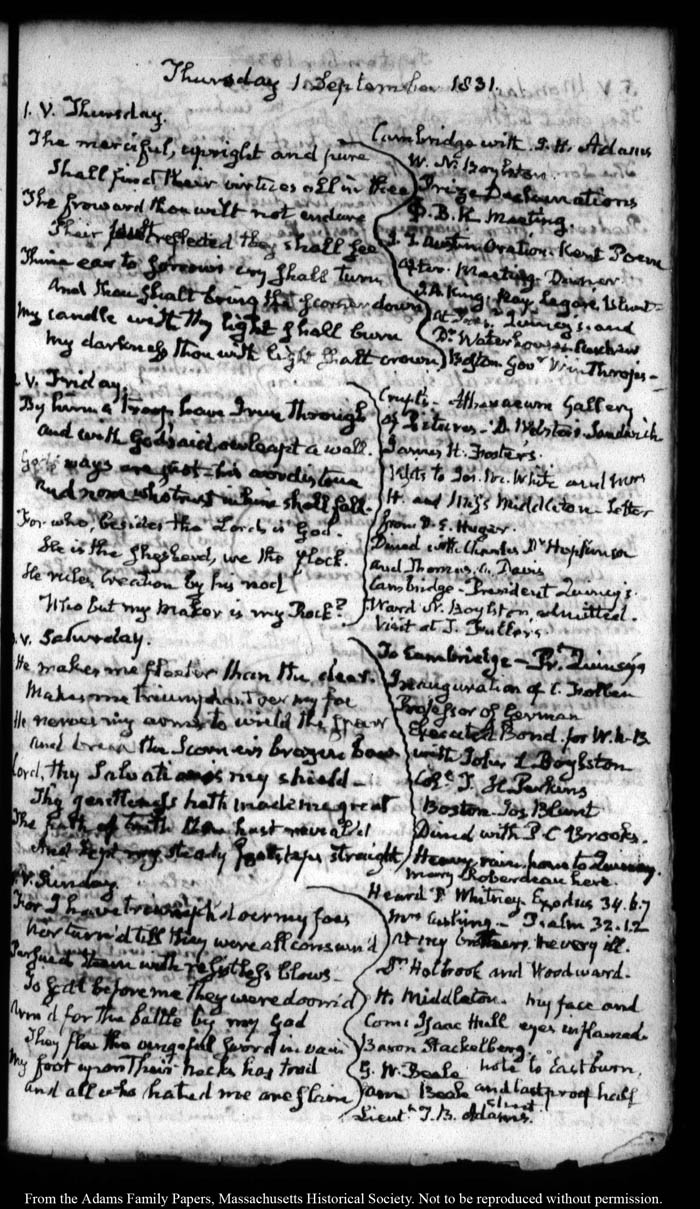 Thursday 1. September 1831.
1. V. Thursday.
The merciful, upright and pure
Shall find their virtues all in thee
The froward thou wilt not endure
Their reflected they shall see
Thine ear to sorrows cry shall turn
And thou shalt bring the scorner down
My candle with thy light shall burn
My darkness thou with light shalt crown
Cambridge with I. H. Adams
W. N. Boylston.
Prize Declamations
P. B. K. Meeting.
J. T. Austin Oration. Kent Poem
after. Meeting. Dinner
J. A. King, Kay, Legare, Blunt
at Pres. Quincy's. and
Dr. Waterhouse.
Boston. Govr. Winthrop's
V. Friday.
By him a troop have I run through
and with God's aid, o'erleapt a wall.
God's ways are just — his word is true
And none who trust in him shall fall.
For who, besides the Lord is God.
He is the Shepherd, we the flock.
He rules Creation by his nod
Who but my Maker is my Rock?
Athenaeum Gallery
of Pictures. D. Webster's Sandwich
James H. Foster's.
Visits to Jos. White and Mrs
H. and Miss Middleton. Letter
from D. E. Huger.
Dined with Charles. Dr. Hopkinson
and Thomas. Davis
Cambridge — President Quincy's.
Ward N. Boylston, admitted.
Visit at T. Fuller's.
V. Saturday.
He makes me fleeter than the deer.
Makes me triumphant o'er my foe
He nerves my arms to wield the spear
and break the Scorner's brazen bow
Lord, thy Salvation is my shield —
Thy gentleness hath made me great
The path of truth thou hast reveal'd
And kept my steady footsteps straight
To Cambridge — Pr. Quincy's
Inauguration of C. Follen
Professor of German
Executed Bond for W. N. B
with John L. Boylston
Col. T. H. Perkins
Boston. Jos. Blunt
Dined with P. C. Brooks.
Heavy rain, home to Quincy.
Mary Roberdeau here.
V. Sunday.
For I have triumph'd o'er my foes
Nor turn'd till they were all consum'd
Pursued them with resistless blows —
To fall before me they were doom'd
Arm'd for the battle by my God
They flee the vengeful sword in vain
My foot upon their necks has trod
and all who hated me are slain
Heard P. Whitney. Exodus 34. 6.7
Mrs Cushing — Psalm 32. 1.2
At my brothers. He very ill.
Drs Holbrook and Woodward.
H. Middleton. my face and
Com: Isaac Hull eyes inflamed.
Baron Stackelberg.
G. W. Beale note to Eastburn,
Anne Beale and last proof half
sheet.
Lieut. T. B. Adams.
From the Adams Family Papers, Massachusetts Historical Society. Not to be reproduced without permission.